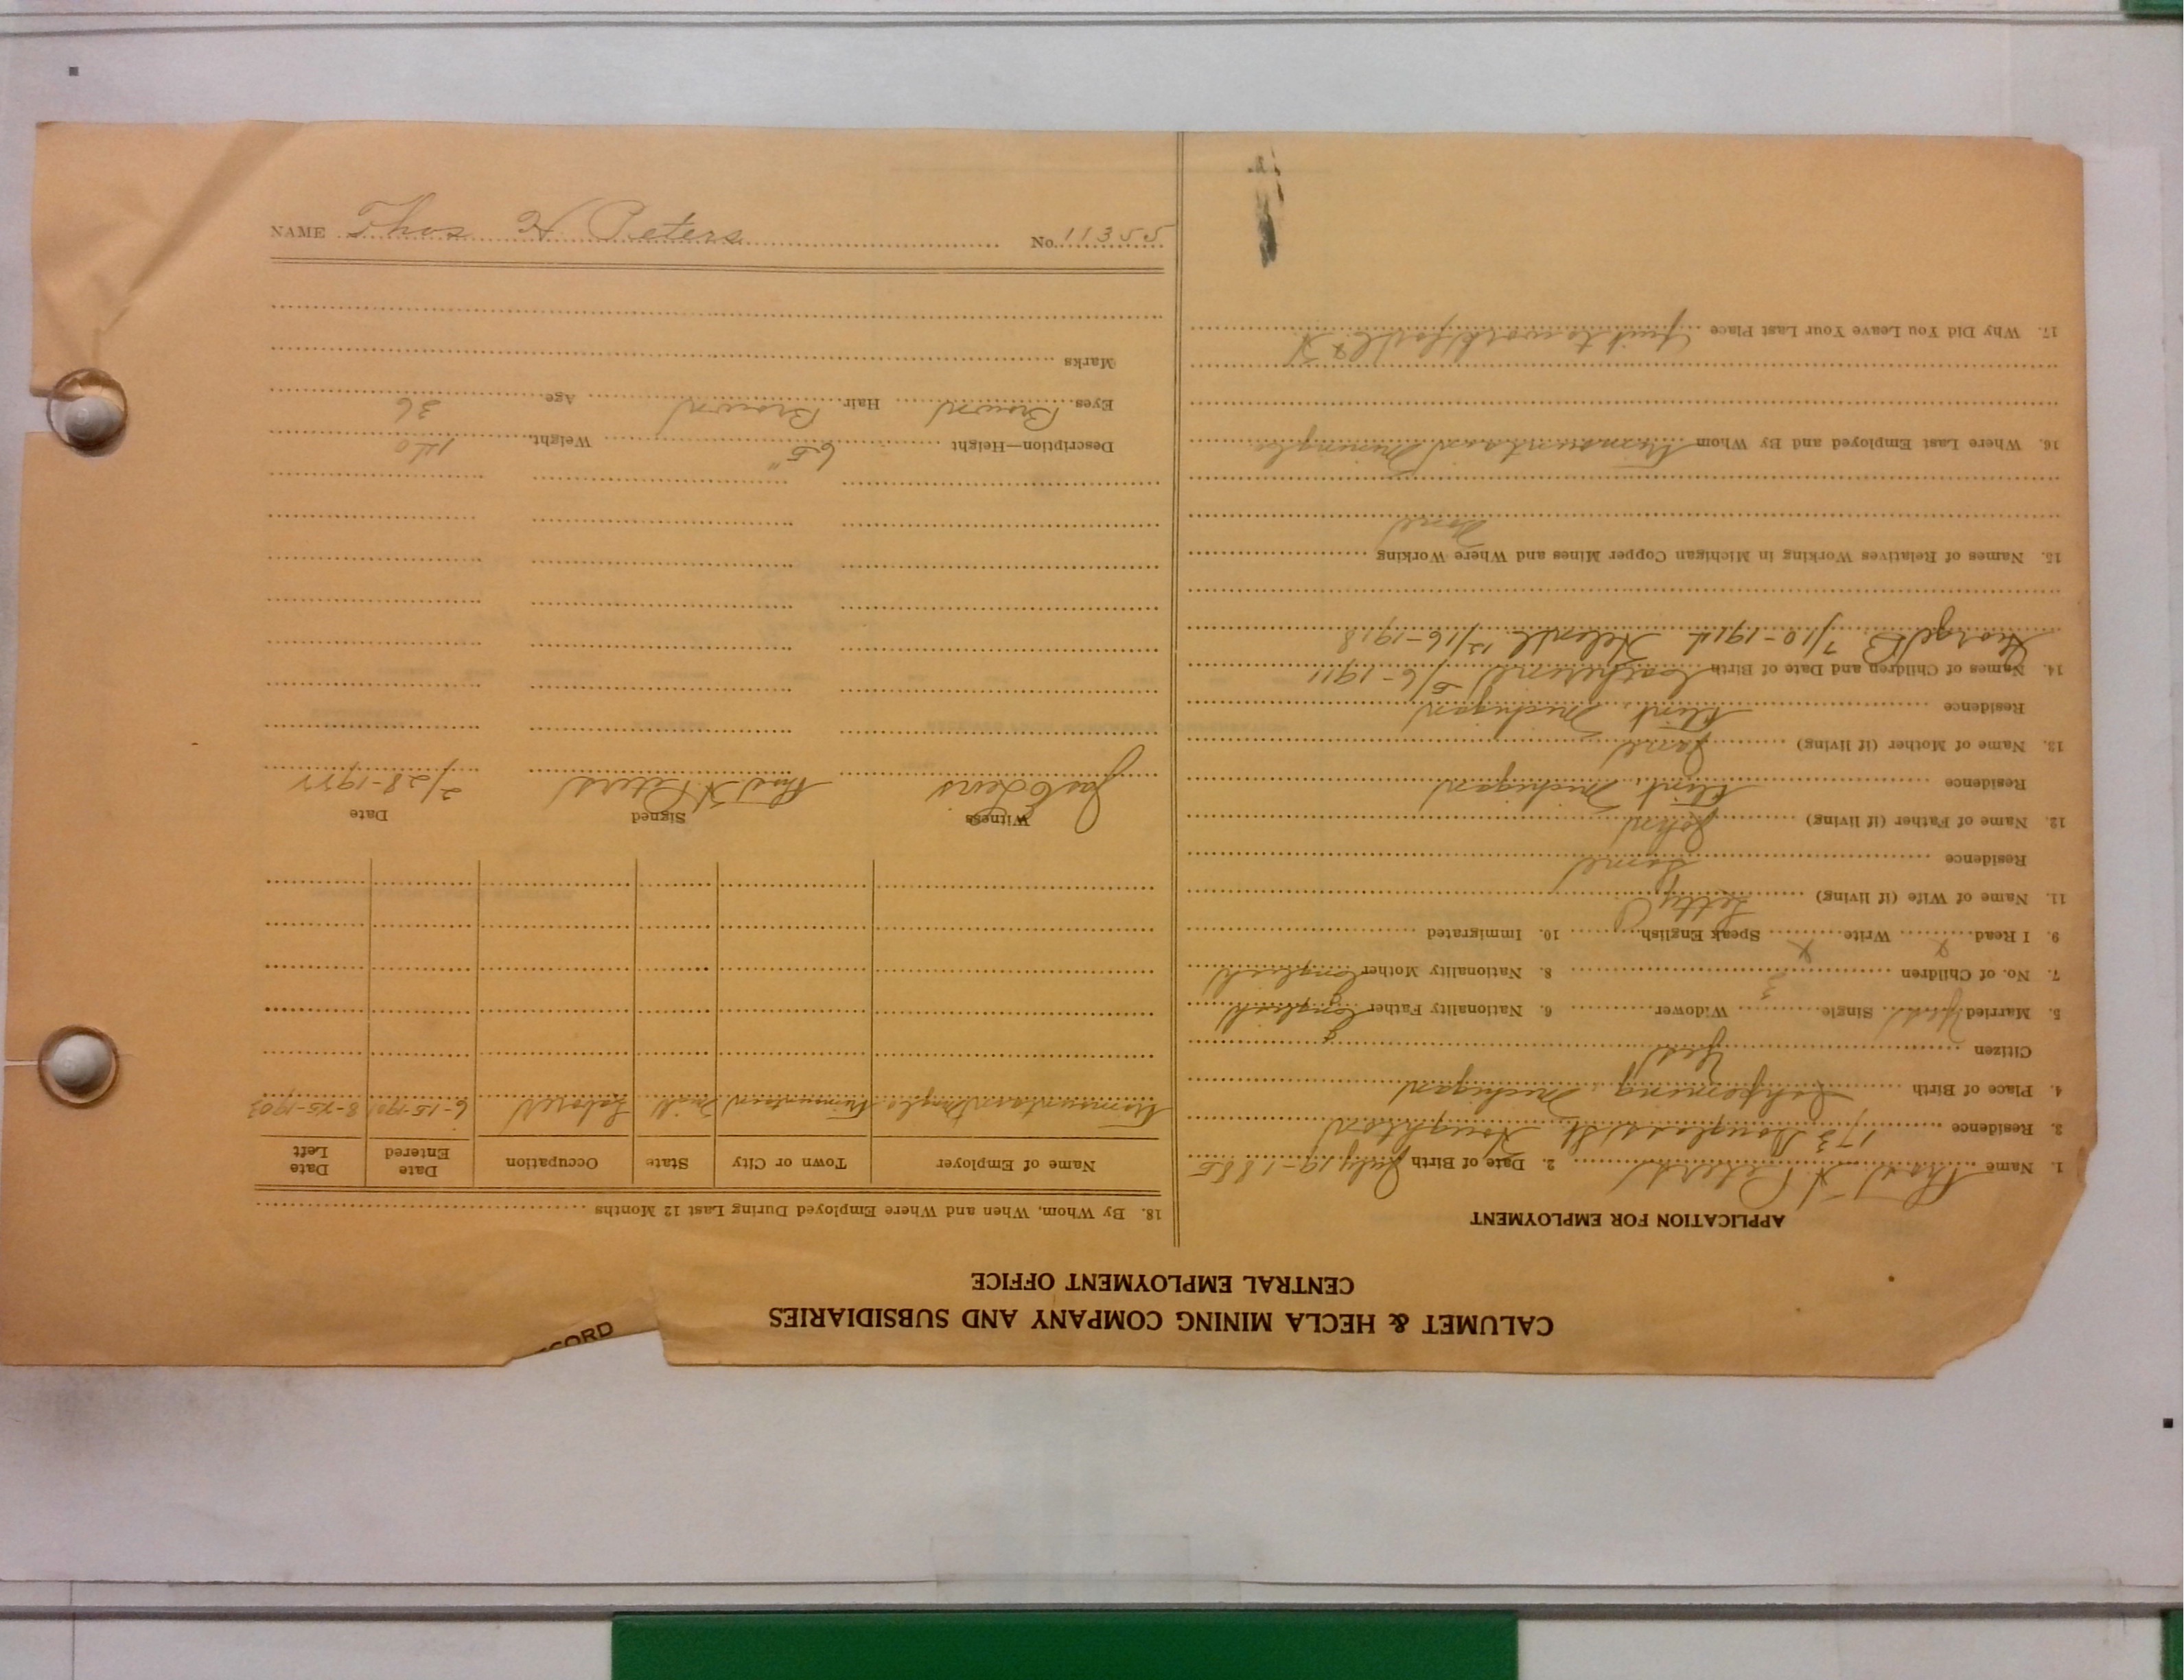 CALUMET & HECLA MINING COMPANY AND SUBSIDIARIES
CENTRAL EMPLOYMENT OFFICE
APPLICATION FOR EMPLOYMENT
1. Name Thos. H. Peters 2. Date of Birth July 19-1885
3. Residence 173 Douglass St. Houghton
4. Place of Birth Ishpeming, Michigan
Citizen Yes
5. Married Yes Single Widower 6. Nationality Father English
7. No. of Children 3 8. Nationality Mother English
9. I Read x Write x Speak English 10. Immigrated
11. Name of Wife (if living) Letty P
Residence Same
12. Name of Father (if living) John
Residence Flint, Michigan
13. Name of Mother (if living) Jane
Residence Flint, Michigan
14. Names of Children and Date of Birth Catherine 5/6-1911
George B 7/10-1914 12/16-1918
15. Names of Relatives Working in Michigan Copper Mines and Where Working
None
16. Where Last Employed and By Whom
17. Why Did You Leave Your Last Place Quit to work for
18. By Whom, When and Where Employed During Last 12 Months
Name of Employer Town or City State Occupation Date Entered Date Left
Laborer 6-15-190 8-25-190
Witness Signed Date
Jas Thos H Peters 2/28-1922
Description—Height 65" Weight 140
Eyes Brown Hair Brown Age 36
Marks
NAME Thos H. Peters No. 11355
CORD